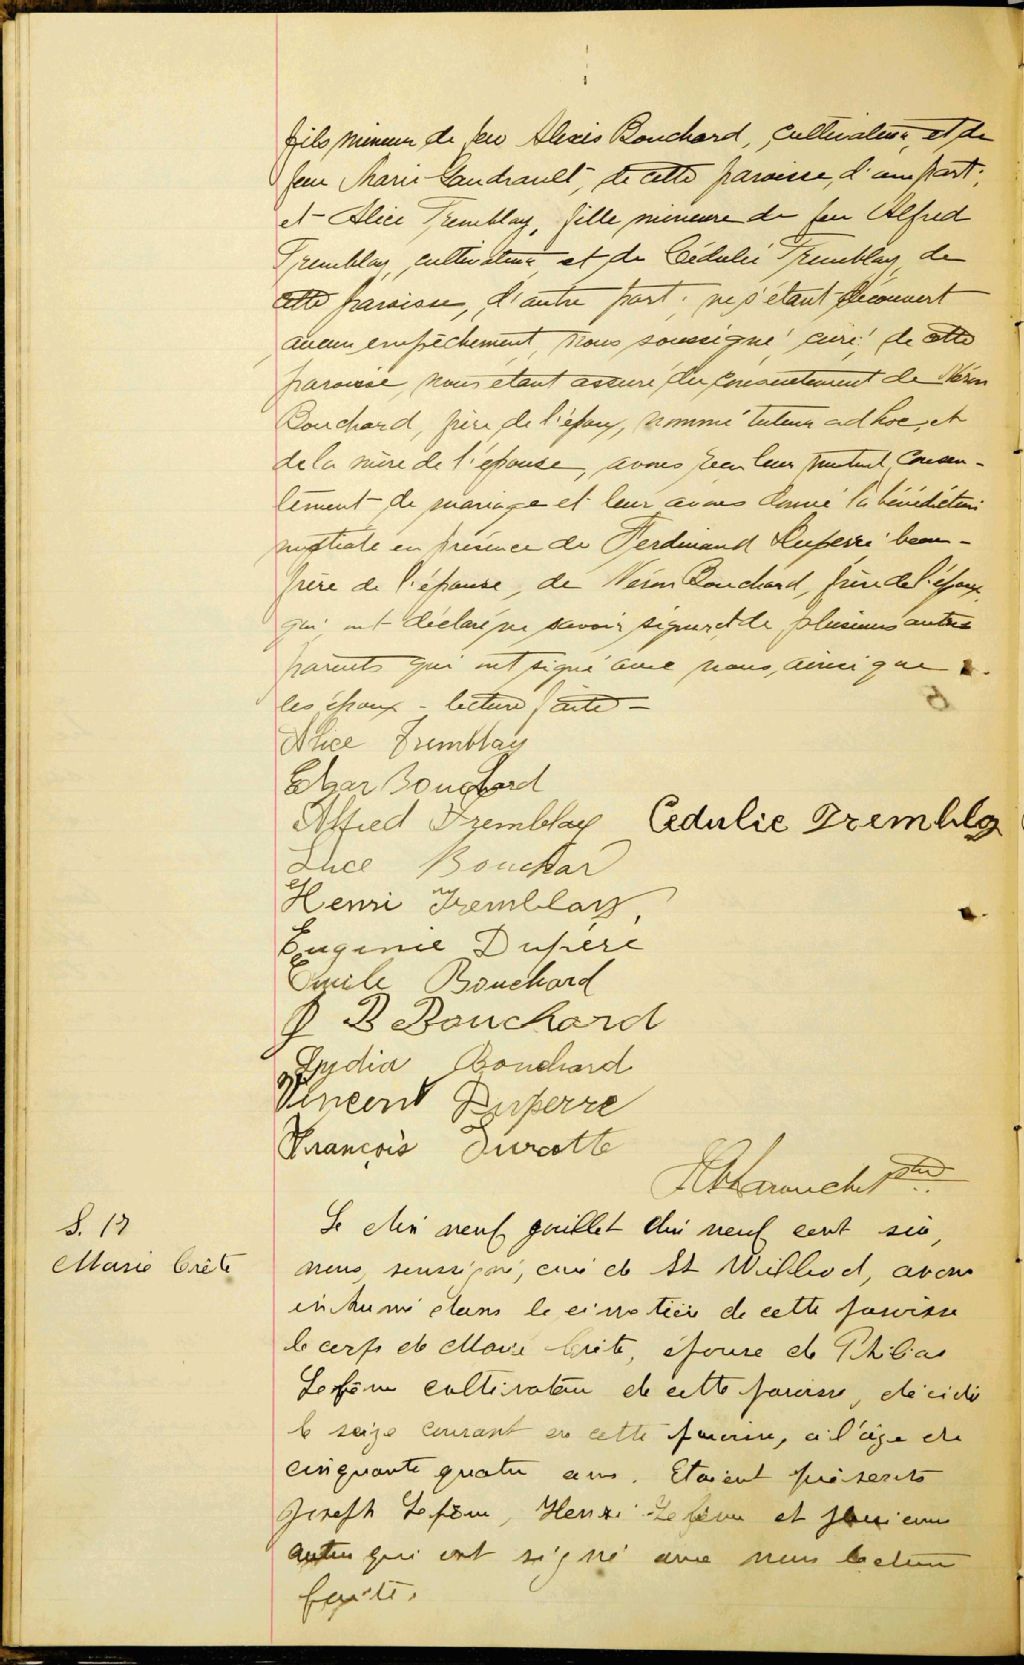 fils mineur de feu Alexis Bouchard, cultivateur, et de
feue Marie Gaudrault, de cette paroisse, d'une part;
et Alice Tremblay, fille mineure de feu Alfred
Tremblay, cultivateur, et de Cédulie Tremblay, de
cette paroisse, d'autre part; ne s'étant découvert
aucun empêchement, nous soussigné, curé, de cette
paroisse, nous étant assuré du consentement de Néron
Bouchard, frère de l'époux, nommé tuteur ad hoc, et
de la mère de l'épouse, avons reçu leur mutuel consen-
tement de mariage et leur avons donné la bénédiction
nuptiale en présence de Ferdinand Duperré beau-
frère de l'épouse, de Néron Bouchard, frère de l'époux,
qui ont déclaré ne savoir signer et de plusieurs autres
parents qui ont signé avec nous, ainsi que
les époux - lecture faite -
Alice Tremblay
Edgar Bouchard
Alfred Tremblay Cédulie Tremblay
Luce Bouchar
Henri Tremblay,
Eugenie Dupéré
Emile Bouchard
J B Bouchard
Lydia Bouchard
Vincent Duperre
François Turcotte
Larouche Ptre
S. 17 Le dix neuf juillet dix neuf cent six,
Marie Crête nous, soussigné, curé de St Willbrod, avons
inhumé dans le cimetière de cette paroisse
le corps de Marie Crête, épouse de Philias
Lefêvre cultivateur de cette paroisse, décédée
le seize courant en cette paroisse, à l'âge de
cinquante quatre ans. Etaient présents
Joseph Lefêvre, Henri Lefêvre et plusieurs
autres qui ont signé avec nous lecture
faite.